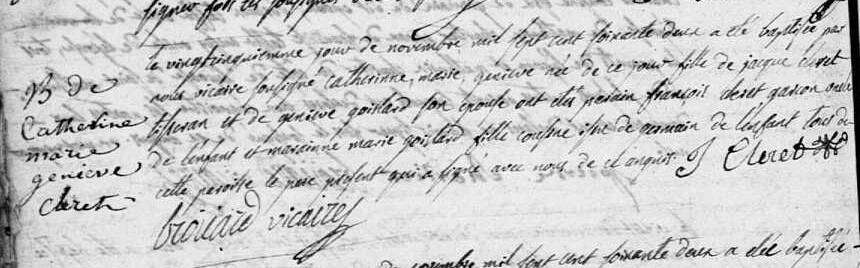 B de
Catherine
marie
genieve
Cleret
le vingtcinquiemme jour de novembre mil sept cent soixante deux a été baptisée par
nous vicaire soussigné catherinne, marie, genieve née de ce jour fille de jacque cleret
tisseran et de genieve goislard son epouse ont étés parain françois cleret garson oncle
de l'enfant et marainne marie goislard fille cousine issue de germain de l'enfant tous de
cette paroisse le pere present qui a signé avec nous de ce
J Cleret
vicaire
novembre mil sept cent soixante deux a été baptisée